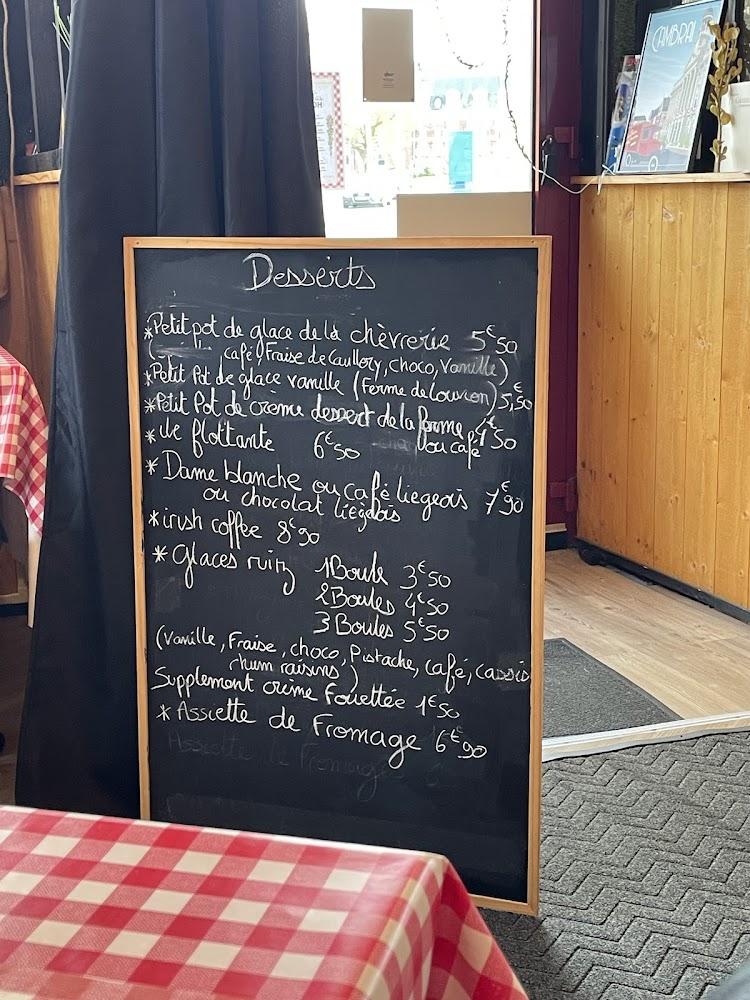 CAMBRAI
Desserts
*Petit pot de glace de la chèvrerie 5€50
( café, Fraise de Caullery, choco, Vanille)
*Petit Pot de glace vanille (Ferme de Louvion) 5,50€
*Petit Pot de crème dessert de la ferme 4€50
ou café
*ile flottante 6€50
*Dame blanche ou café liegeois 7€90
ou chocolat liégeois
*irish coffee 8€90
*Glaces 1 Boule 3€50
2 Boules 4€50
3 Boules 5€50
(Vanille, Fraise, choco, Pistache, café, cassis
rhum raisins)
Supplement crème Fouettée 1€50
*Assiette de Fromage 6€90
Assiette de Fromage